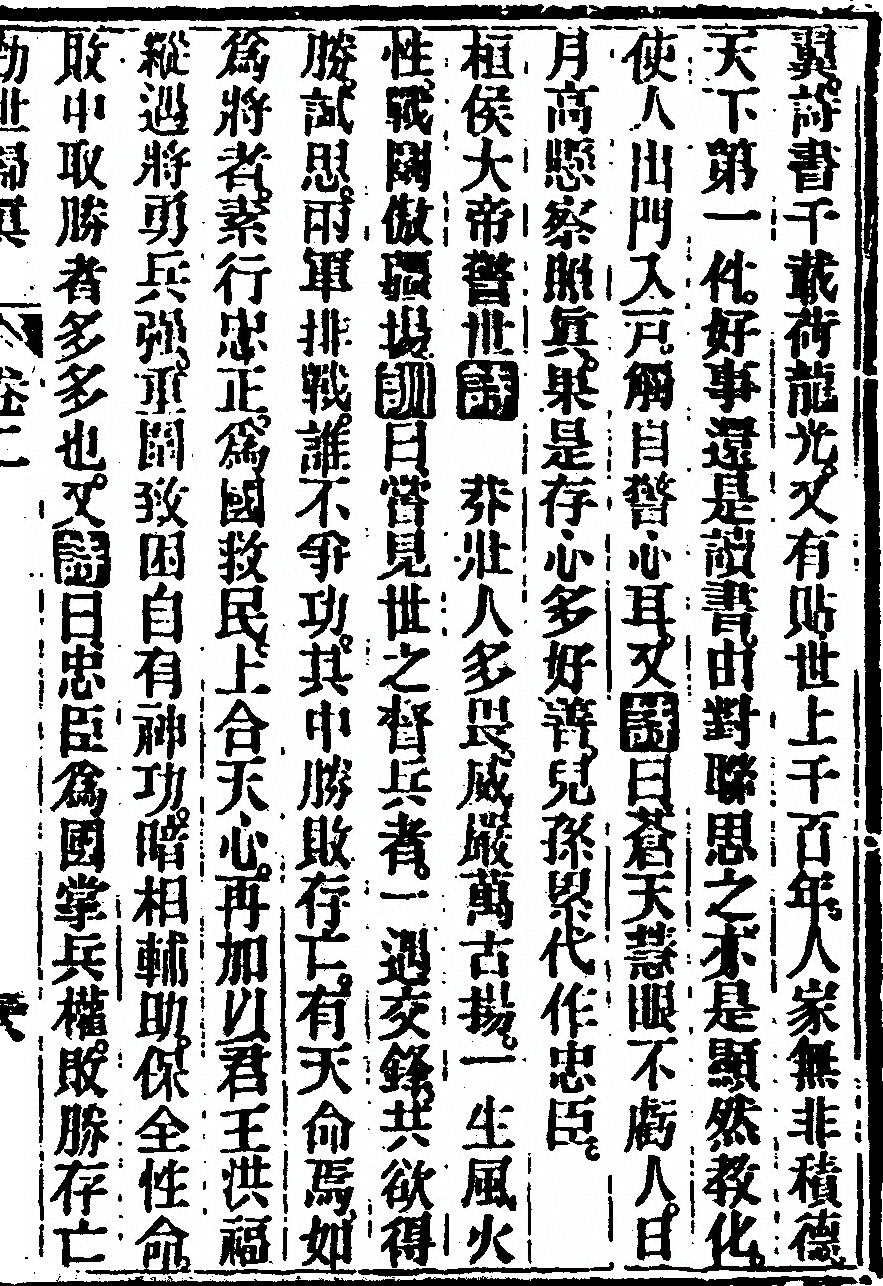 翼詩書千載荷龍光又有貼世上千百年人家無非積德
天下第一件好事還是讀書由對聯思之亦是顯然教化
使人出門入戶觸目警心耳又詩曰蒼天慧眼不虧人日
月高懸察照真果是存心多好善兒孫累代作忠臣
桓侯大帝警世詩 莽壯人多畏威嚴萬古揚一生風火
性戰鬪傲疆場訓曰嘗見世之督兵者一遇交鋒共欲得
勝試思兩軍排戰誰不爭功其中勝敗存亡有天命焉如
為將者素行忠正為國救民上合天心再加以君王洪福
縱遇將勇兵强重圍致困自有神功暗相輔助保全性命
敗中取勝者多多也又詩曰忠臣為國掌兵權敗勝存亡
世歸真 卷二